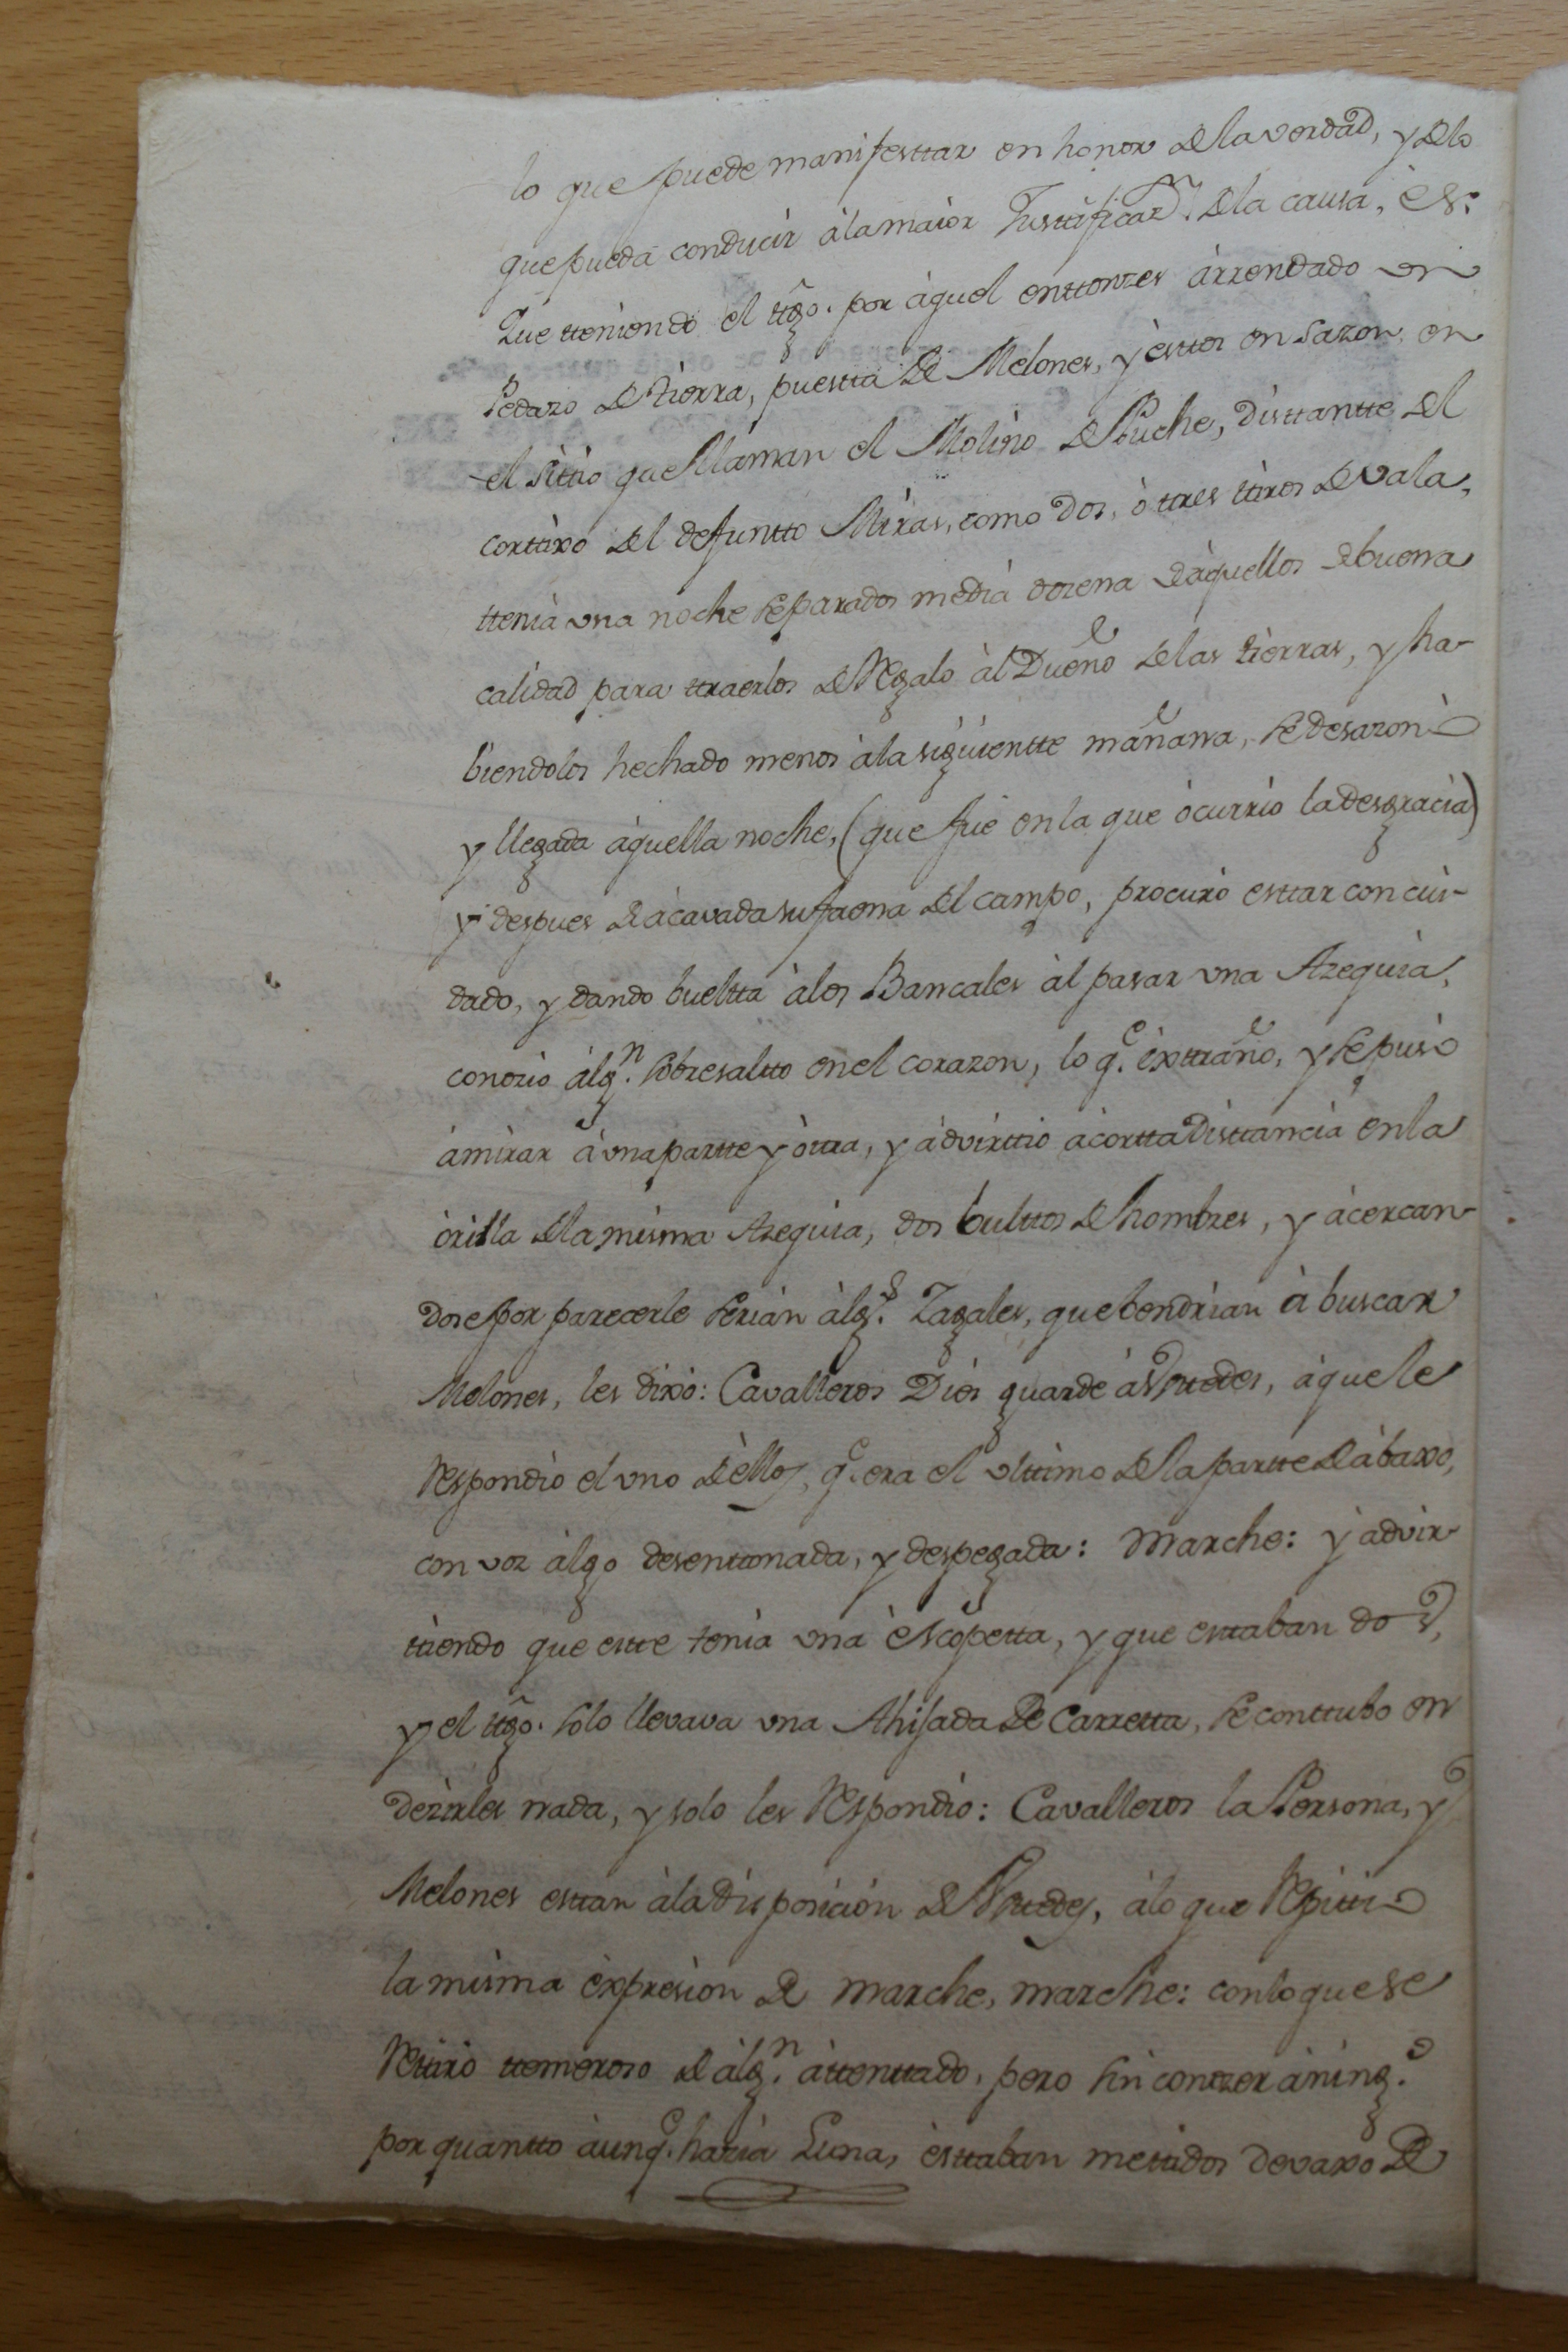 lo que puede manifesttar en honor de la verdad, y de lo
que pueda conducir à la maior Justtificaz.n de la causa, es:
Que tteniendo el ttgo. por àquel enttonzes àrrendado un
Pedazo de tierra, puestta de Melones, y èsttos en sazon, en
el sittio que llaman el Molino de Puche, disttantte del
corttixo del defuntto Miras, como dos, ò ttres ttiros de vala,
ttenia una noche separados media dozena de àquellos de buena
calidad para ttraerlos de Regalo àl Dueño de las tierras, y ha-
biendolos hechado menos à la siguientte mañana, se desazonò
y llegada àquella noche, (que fué en la que òcurrio la desgracia)
y despues de àcavada su faena del campo, procurò esttar con cui-
dado, y dando bueltta à los Bancales àl pasar una Azequia,
conozió àlg.n sobresaltto en el corazon, lo q.e èxttrañó, y se pusò
à mirar à una partte y òttra, y àdvirttio à cortta disttancia en la
òrilla de la misma Azequia, dos bulttos de hombres, y àcercan-
dose por parecerle serian àlg.s Zagales, que bendrian à buscar
Melones, les dixo: Cavalleros Dios guarde à Vsttedes, à que le
Respondio el uno de èllos, q.e era el ulttimo de la partte de àbaxo,
con voz àlgo desenttonada, y despegada: Marche: y àdvir-
ttiendo que estte tenia una èscopetta, y que esttaban dos,
y el ttgo. solo llevava una Ahijada de Carretta, se conttubo en
dezirles nada, y solo les Respondio: Cavalleros la Persona, y
Melones esttan à la disposicion de Vsttedes, à lo que Repittiò
la misma èxpresion de marche, marche: con lo que se
Rettirò ttemeroso de àlg.n àttenttado, pero sin conozer à ning.o
por quantto àunq.e hazia Luna, èsttaban mettidos devaxo de